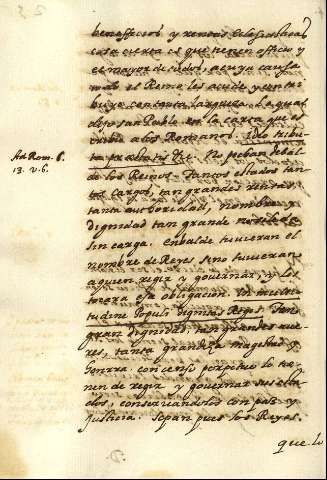 beneffiçios y renoui
cosa cierta es que tienen officio y
el mayor de todos, a cuya causa
mas el Reino les acude y contri
buye con tanta largueza. Lo qual
dijo san Pablo en la carta que es
cribio a los Romanos. Ideo tribu
ta præstatis &c. No se
de los Reinos tantos estados tan
tos cargos, tan grandes rentas
tanta autoridad, nombre y
dignidad tan grande
sin carga. Enbalde tuuieran el
nombre de Reyes sino tuuieran
a quien regir y gouernar, y les
tocara esa obligacion. In multi
tudine Populi dignitas Regis. Tan
gran dignidad, tan grandes aue
res, tanta grandeza magestad y
honrra, con censo perpetuo lo tie
nen de regir y gouernar sus esta
dos, conseruandolos con paz y
justicia. Sepan pues los Reyes.
que. lo
Ad Rom. 6.
13. v. 6.